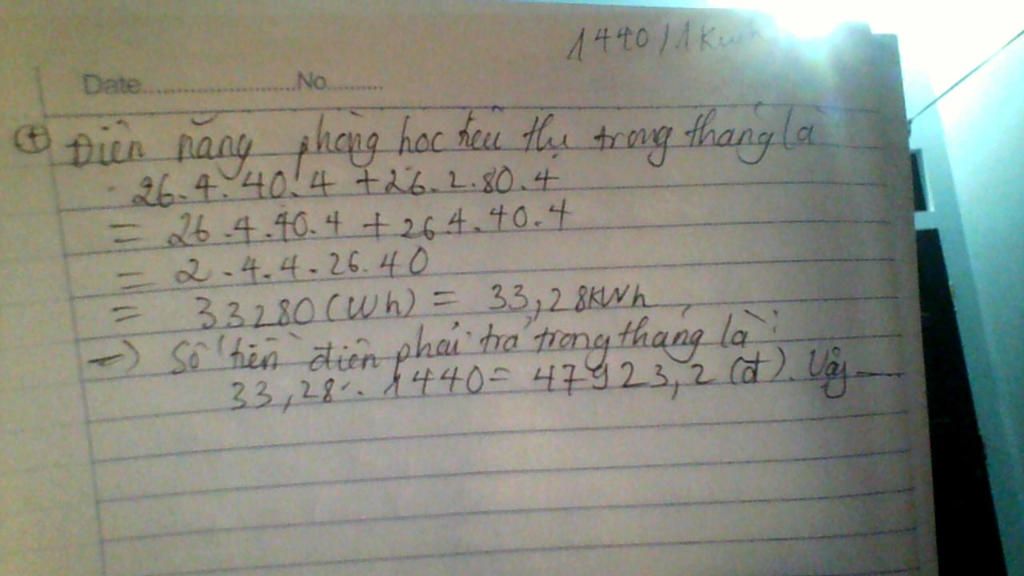 1440/1 Kwh
Date......................No.........
+ Điện năng phòng học tiêu thụ trong tháng là
26.4.40.4 + 26.2.80.4
= 26.4.40.4 + 26.4.40.4
= 2.4.4.26.40
= 33280 (Wh) = 33,28KWh
=> Số tiền điện phải trả trong tháng là:
33,28. 1440 = 47923,2 (đ). Vậy —